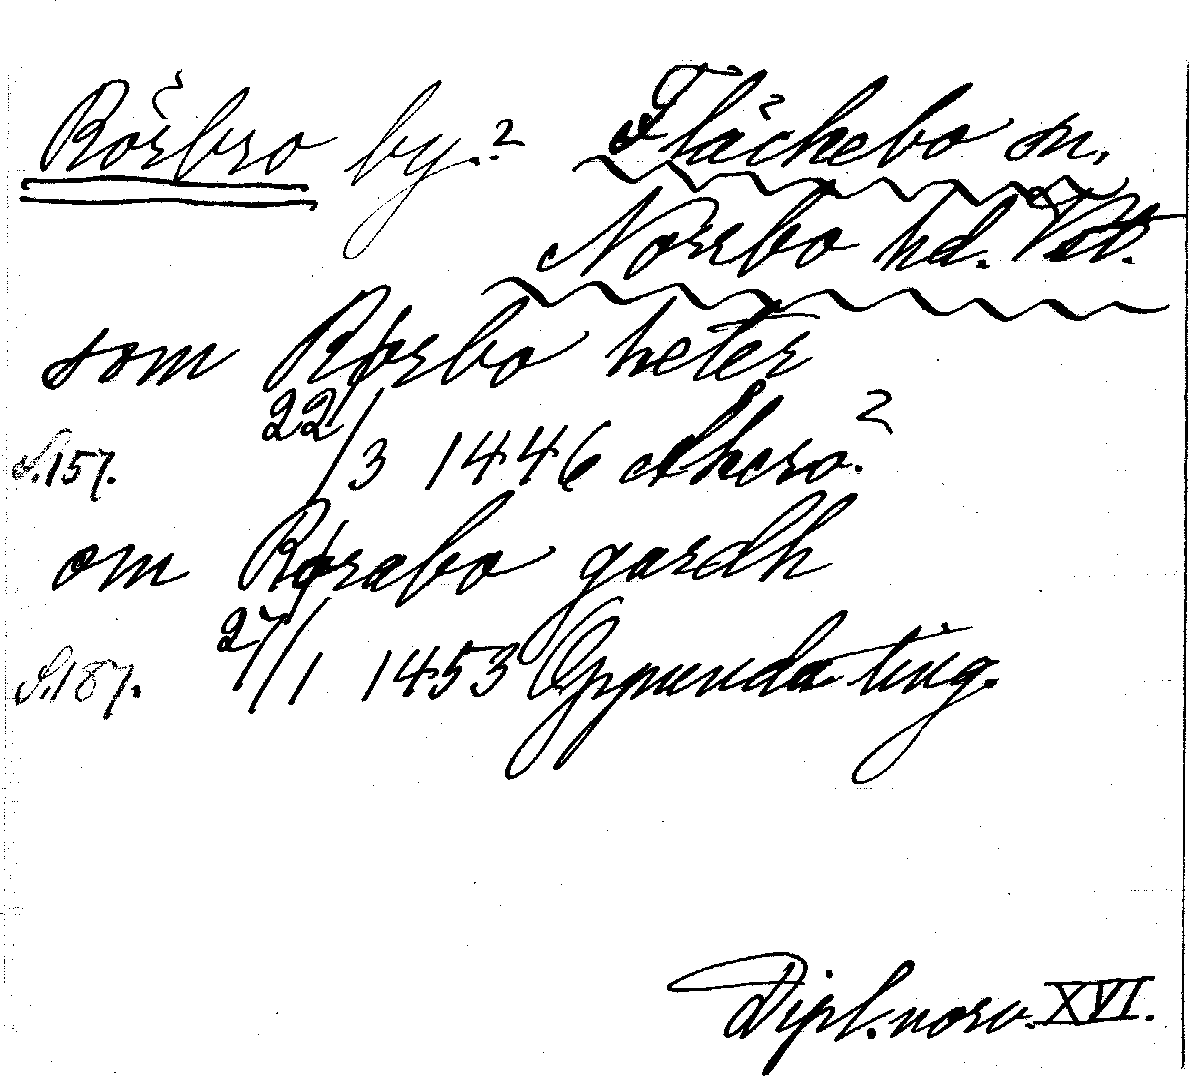 Rörbro by.? Fläckebo sn,
Norrbo hd. Vstm.
som Rørbo heter
S.157. 22/3 1446 Akero?
om Rørabo gardh
S.187. 27/1 1453 Oppunda ting.
Dipl. norv. XVI.